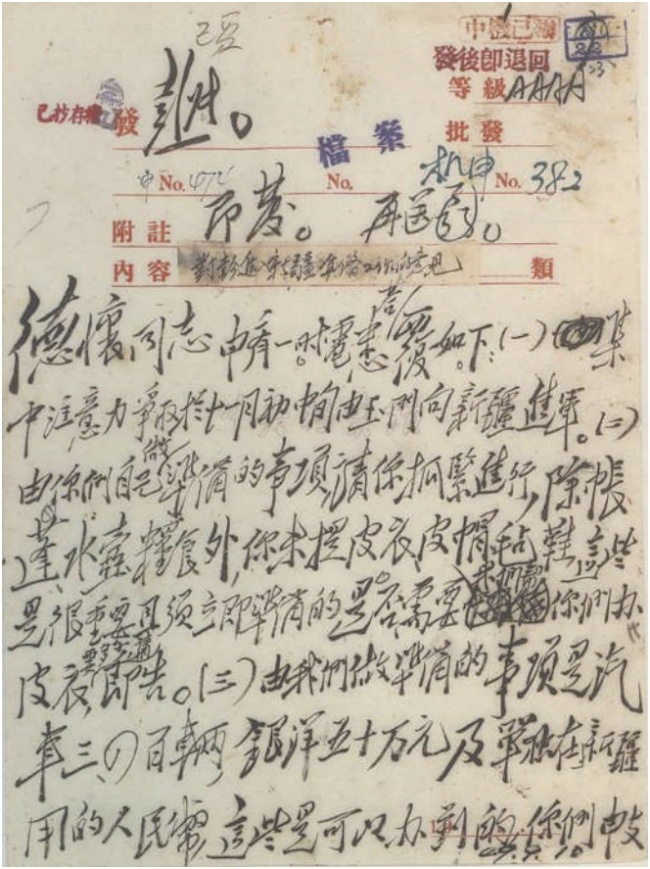 中機已辦
發後即退回
等級 AAAA
已抄存檔
發 彭
檔案 批發
No. 474 No. 机中 No. 382
附註 即發。
內容 對彭進軍新疆準備工作的意見 類
德懷同志 申齊一时電悉 答覆如下：(一) 集
中注意力爭取於十一月初 由玉門向新疆進軍。(二)
由你們自己做準備的事項，請你抓緊進行，除帳
蓬、水壺、糧食外，你未提皮衣皮帽毡鞋，這些
是很重要且須立即準備的，是否需要 你們办
皮衣 即告。(三) 由我們做準備的事項是汽
車三、四百輛，銀洋五十万元及單独在新疆
用的人民幣，這些是可以办到的。你們申支